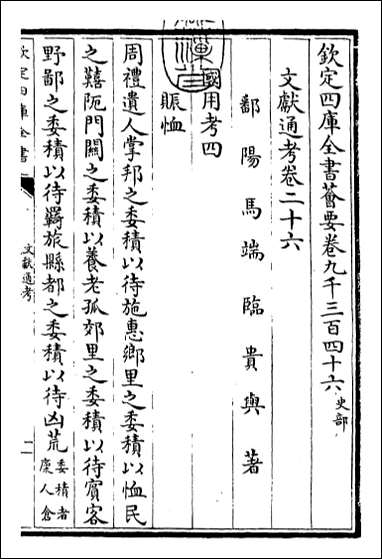 欽定四庫全書薈要卷九千三百四十六史部
文獻通考卷二十六
鄱陽馬端臨貴與著
國用考四
賑恤
周禮遺人掌邦之委積以待施惠鄉里之委積以恤民
之囏阨門關之委積以養老孤郊里之委積以待賓客
野鄙之委積以待羈旅縣都之委積以待凶荒委積者
廩人倉
欽定四庫全書
文獻通考
一